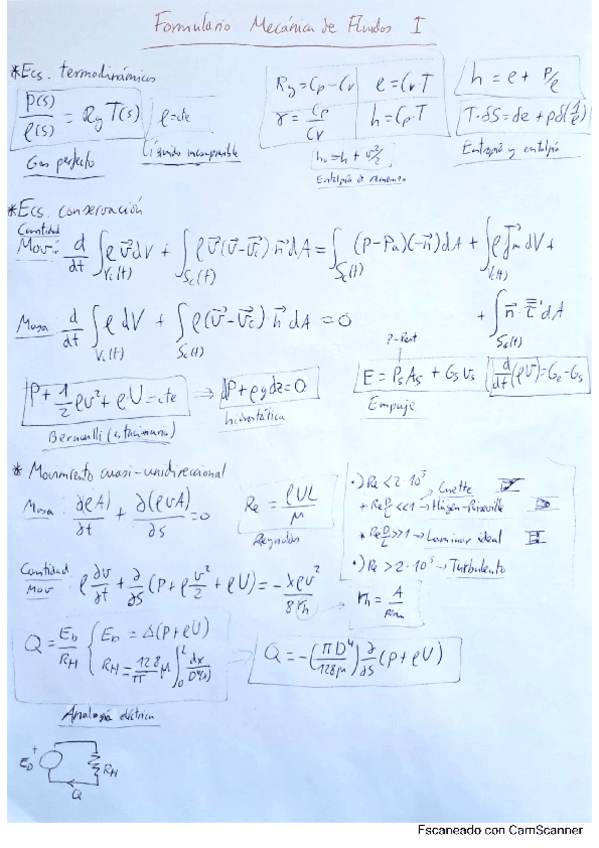 Formulario Mecánica de Fluidos I
*Ecs. termodinámicas
P(s)/ρ(s) = Rg T(s)
ρ = cte
Gas perfecto
Líquido incompresible
Rg = Cp - Cv
e = Cv T
γ = Cp/Cv
h = Cp·T
h₀ = h + v²/2
Entalpía de remanso
h = e + P/ρ
T·δS = de + pd(1/ρ)
Entropía y entalpía
*Ecs. conservación
Cantidad
Mov: d/dt ∫Vc(t) ρ v⃗ dV + ∫Sc(t) ρ v⃗(v⃗ - v⃗c)·n⃗ dA = ∫Sc(t) (P - Pa)(-n⃗) dA + ∫Vc(t) ρ f⃗m dV +
+ ∫Sc(t) n⃗·τ' dA
Masa: d/dt ∫Vc(t) ρ dV + ∫Sc(t) ρ(v⃗ - v⃗c)·n⃗ dA = 0
P + 1/2 ρv² + ρU = cte ⇒ dP + ρgdz = 0
Bernoulli (estacionario)
hidrostática
E = Ps As + Gs vs
Empuje
d/dt (ρv) = Ge - Gs
* Movimiento cuasi-unidireccional
Masa: ∂(ρA)/∂t + ∂(ρvA)/∂s = 0
Re = ρUL/μ
Reynolds
·) Re < 2·10³
Couette
+ Re D/L << 1 → Hagen-Poiseuille
* Re D/L >> 1 → Laminar ideal
·) Re > 2·10³ → Turbulento
Cantidad
Mov: ρ ∂v/∂t + ∂/∂s (P + ρ v²/2 + ρU) = - λρv²/8rh
rh = A/Perím
Q = ED/RH { ED = Δ(P + ρU)
RH = 128/π μ ∫₀ᴸ dx/D⁴(x)
Q = -(πD⁴/128μ) ∂/∂s (P + ρU)
Analogía eléctrica
ED
+
RH
Q
Escaneado con CamScanner